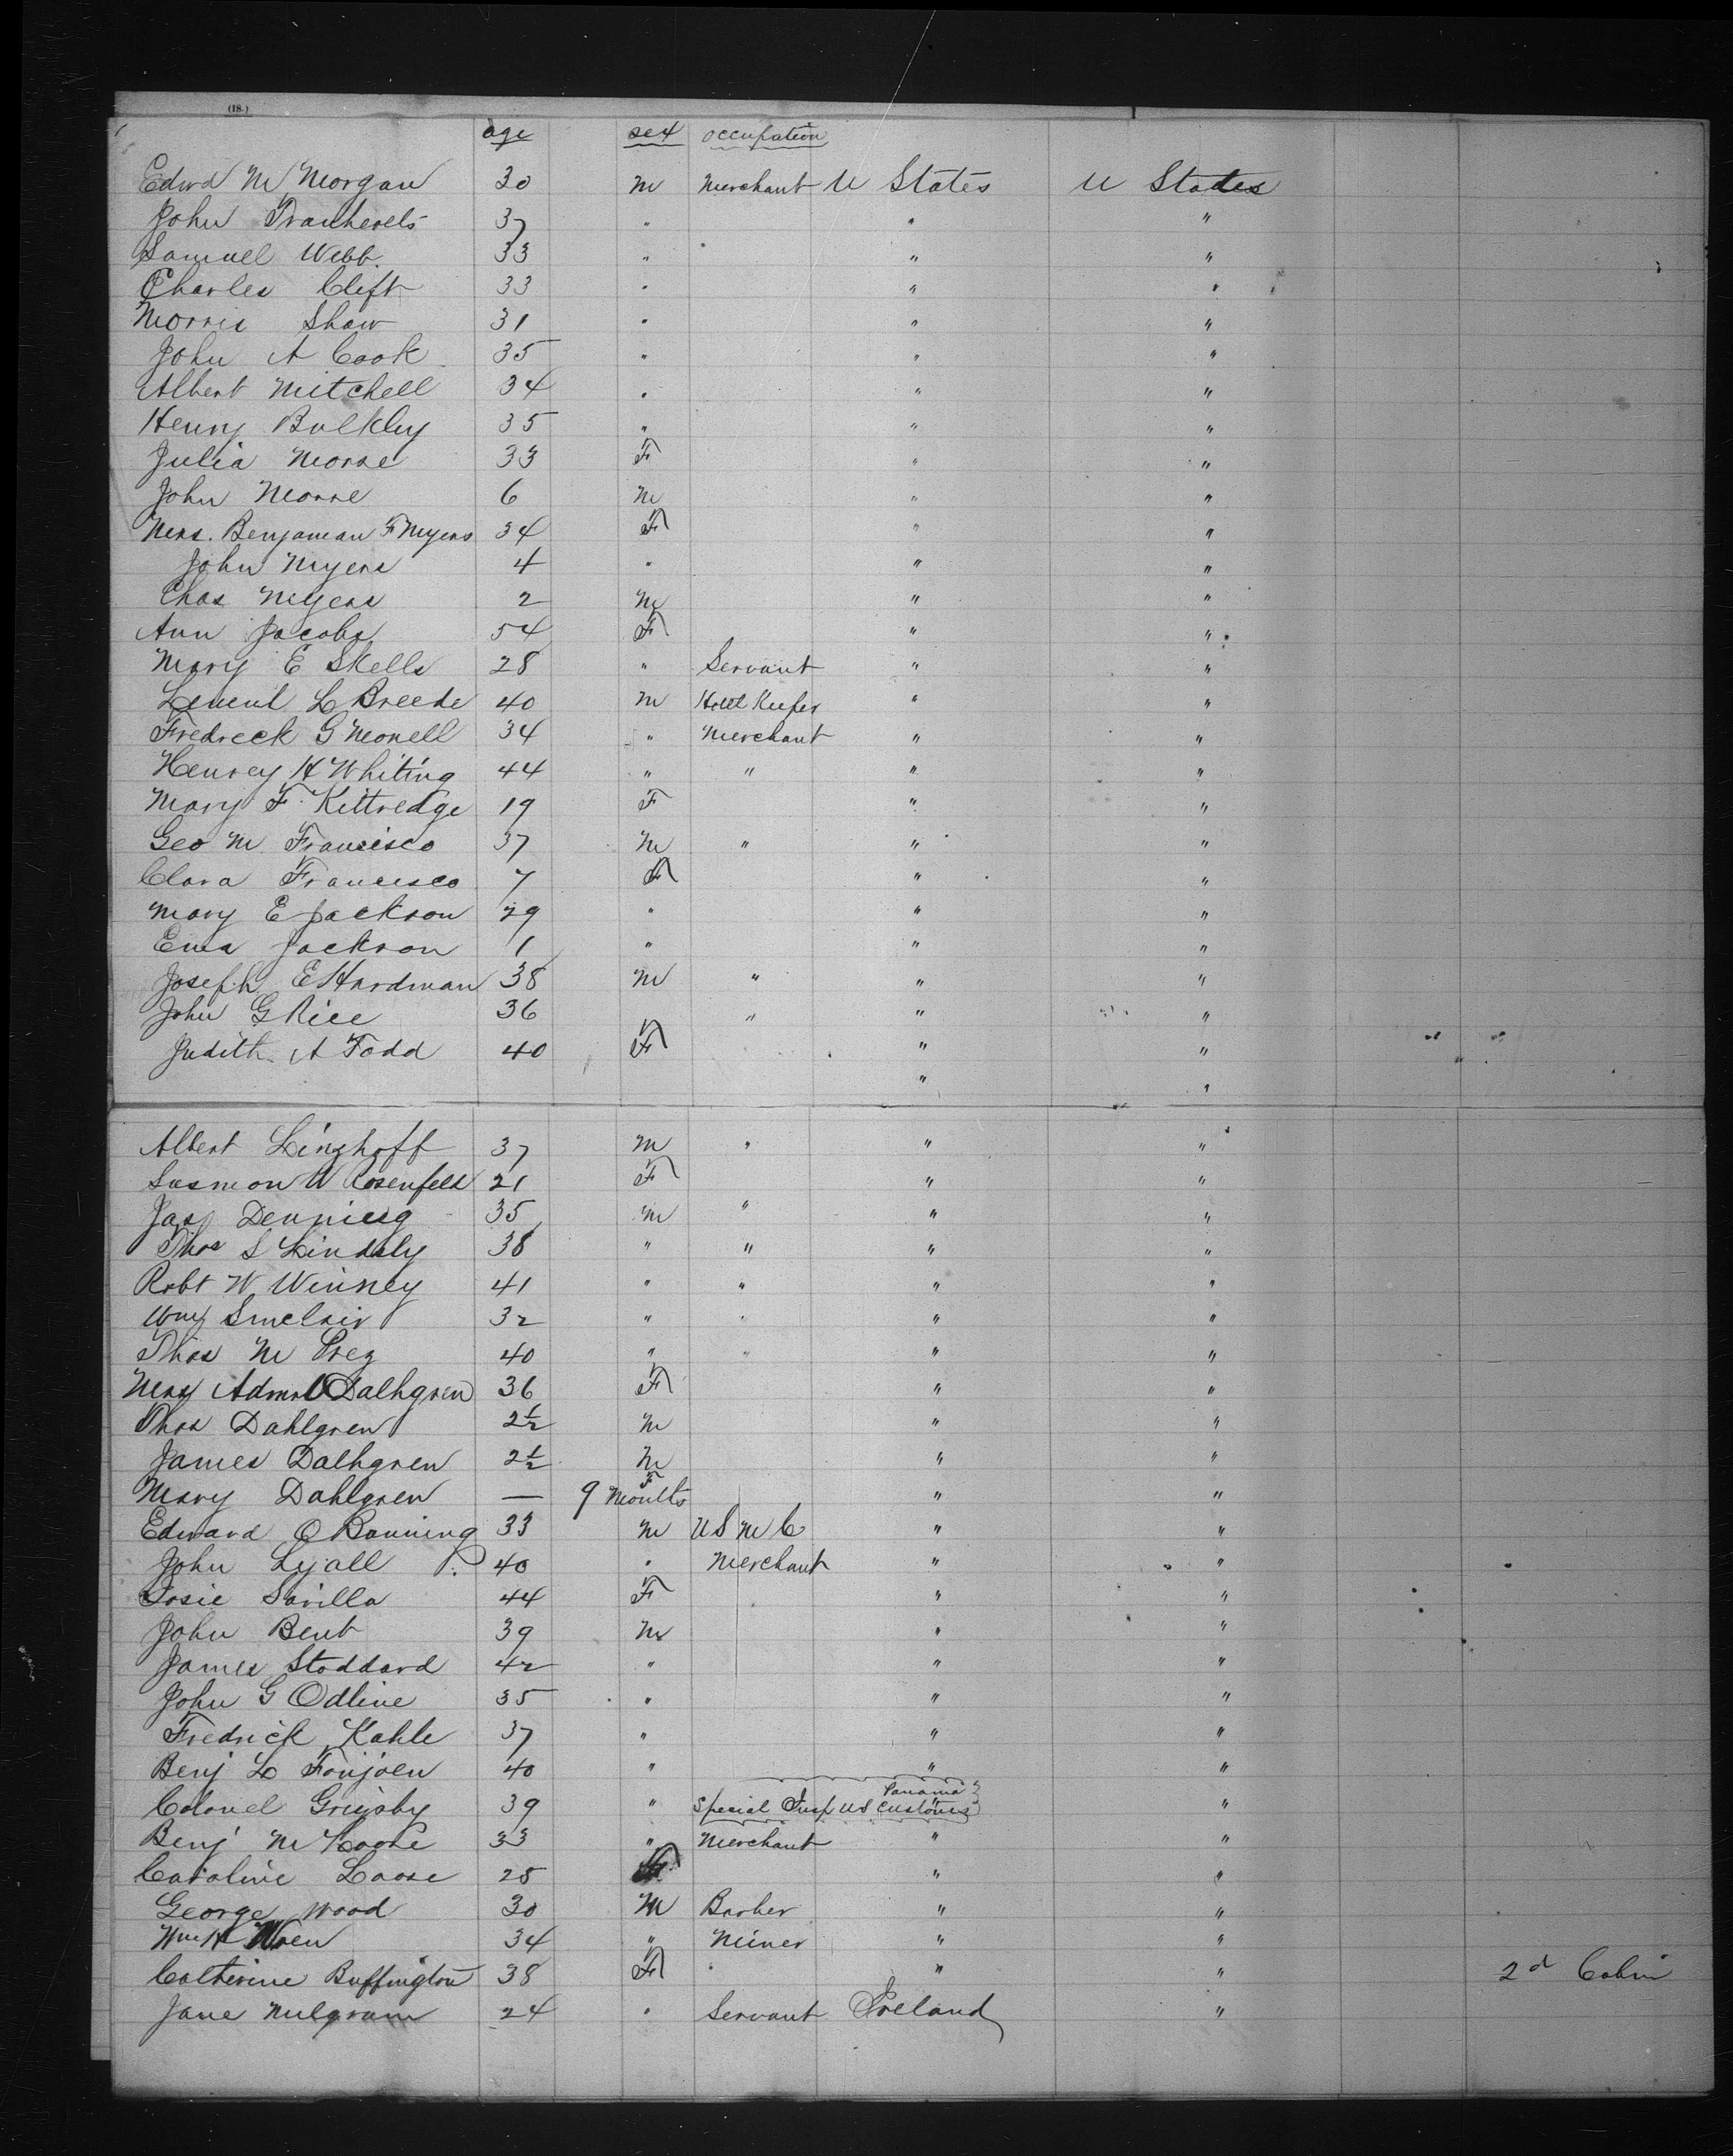 (18.)
age sex occupation
Edwd M Morgan 30 M Merchant U States U States
John 37 " " "
Samuel Webb. 33 " " " "
Charles Clift 33 " " "
Morris Shaw 31 " " "
John A Cook 35 " " "
Albert Mitchell 34 " " "
Henry Bulkley 35 " " "
Julia Morse 33 F " "
John Morse 6 M " "
Mrs. Benjamean F Myers 34 F " "
John Myers 4 " " "
Chas Myers 2 M " "
Ann Jacobs 54 F " "
Mary E Skells 28 " Servant " "
Lemuel L Breede 40 M Hotel Keeper " "
Fredreck G Monell 34 " Merchant " "
Henrey H Whiting 44 " " " "
Mary F. Kittredge 19 F " "
Geo M Francisco 37 M " " "
Clara Francisco 7 F " "
Mary E Jackson 29 " " "
Ema Jackson 1 " " "
Joseph E Hardman 38 M " " "
John G Rice 36 " " "
Judith A Todd 40 F " "
" "
Albert Linghoff 37 M " " "
W Rosenfeld 21 F " "
Jas Denning 35 M " " "
Thos S Lindsly 38 " " " "
Robt W Winney 41 " " " "
Wm Sinclair 32 " " " "
Thos M 40 " " " "
Mrs Admrl Dalhgren 36 F " "
Thos Dahlgren 2½ M " "
James Dalhgren 2½ M " "
Mary Dahlgren — 9 Months F " "
Edward O Banning 33 M U S M C " "
John Lyall 40 " Merchant " "
Savilla 44 F " "
John Bent 39 M " "
James Stoddard 42 " " "
John G Odline 35 " " "
Fredrick Kahle 37 " " "
Benj L 40 " " "
Colonel Grigsby 39 " Special Insp U S Customs Panama " "
Benj M Loose 33 " Merchant " "
Caroline Loose 25 F " "
George Wood 30 M Barber " "
Wm H Wren 34 " Miner " "
Catherine Buffington 38 F " " " 2d Cabin
Jane Milgram 24 " Servant Ireland "